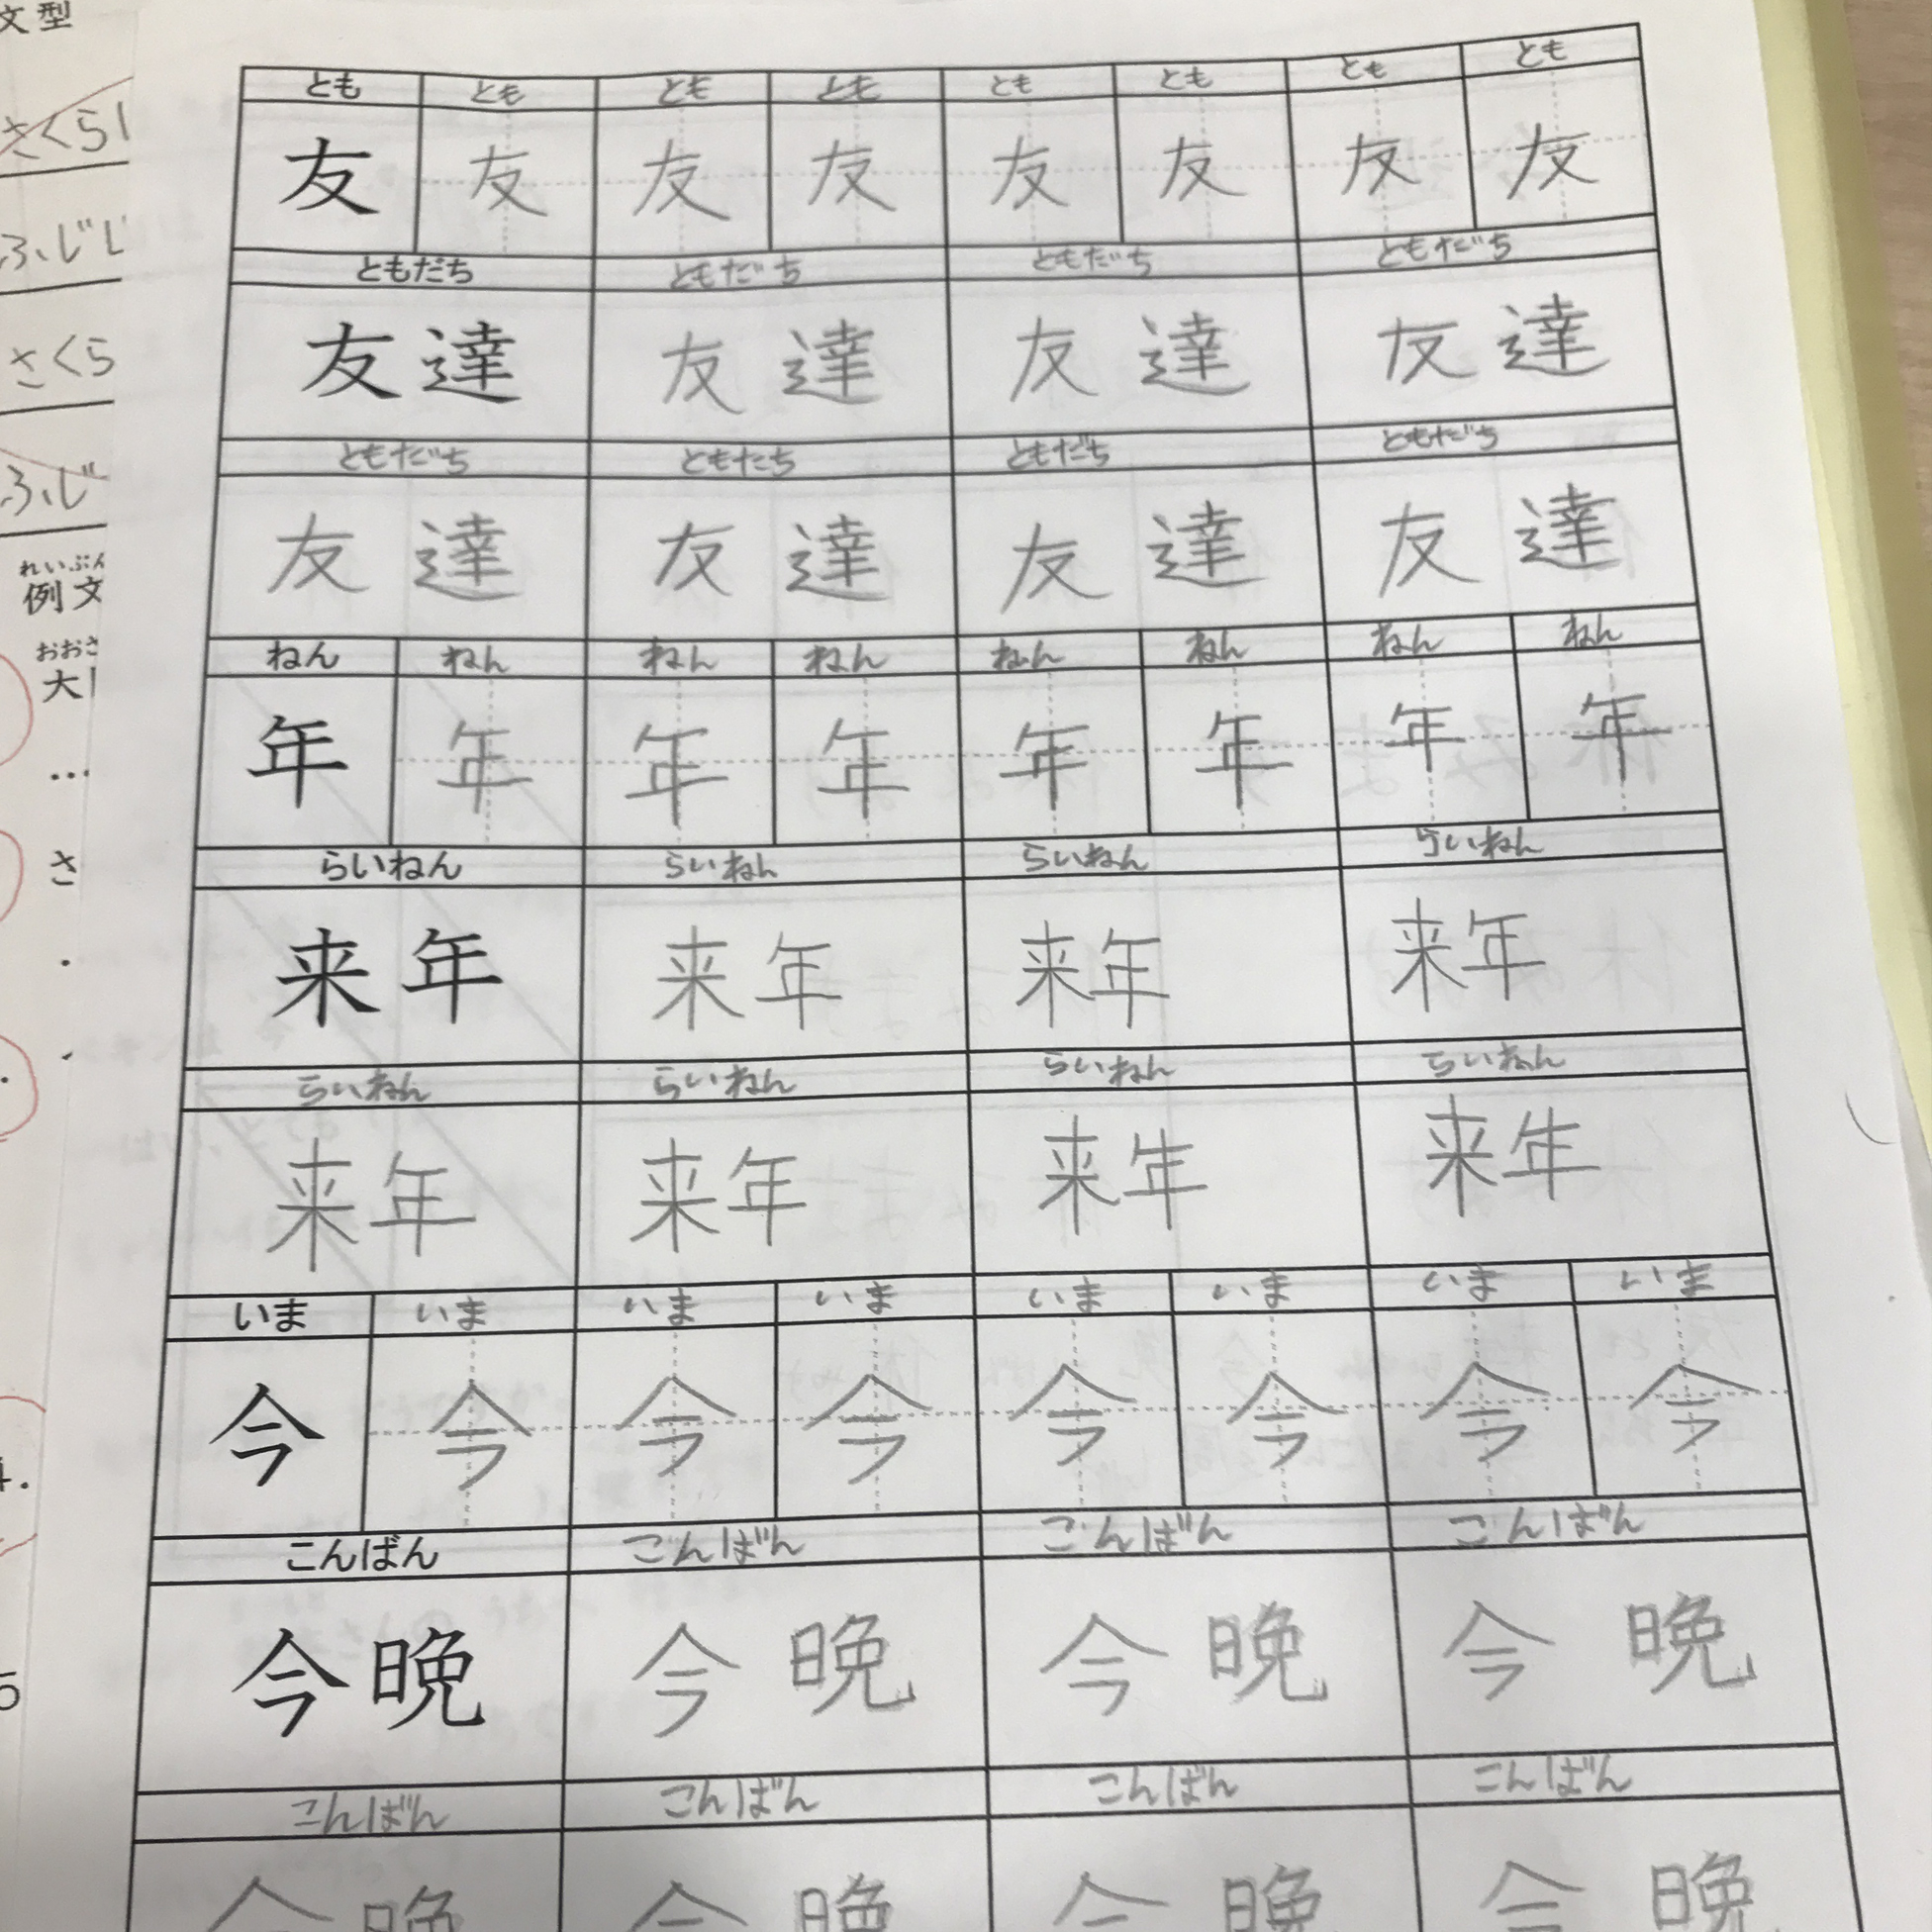 文型
さくら
ふじ
さくら
ふじ
れいぶん
例文
おおさ
大
…
さ
4.
5
とも とも とも とも とも とも とも とも
友 友 友 友 友 友 友 友
ともだち ともだち ともだち ともだち
友達 友達 友達 友達
ともだち ともたち ともだち ともだち
友達 友達 友達 友達
ねん ねん ねん ねん ねん ねん ねん ねん
年 年 年 年 年 年 年 年
らいねん らいねん らいねん らいねん
来年 来年 来年 来年
らいねん らいねん らいねん らいねん
来年 来年 来年 来年
いま いま いま いま いま いま いま いま
今 今 今 今 今 今 今 今
こんばん こんばん こんばん こんばん
今晩 今晩 今晩 今晩
こんばん こんばん こんばん こんばん
今晩 今晩 今晩 今晩